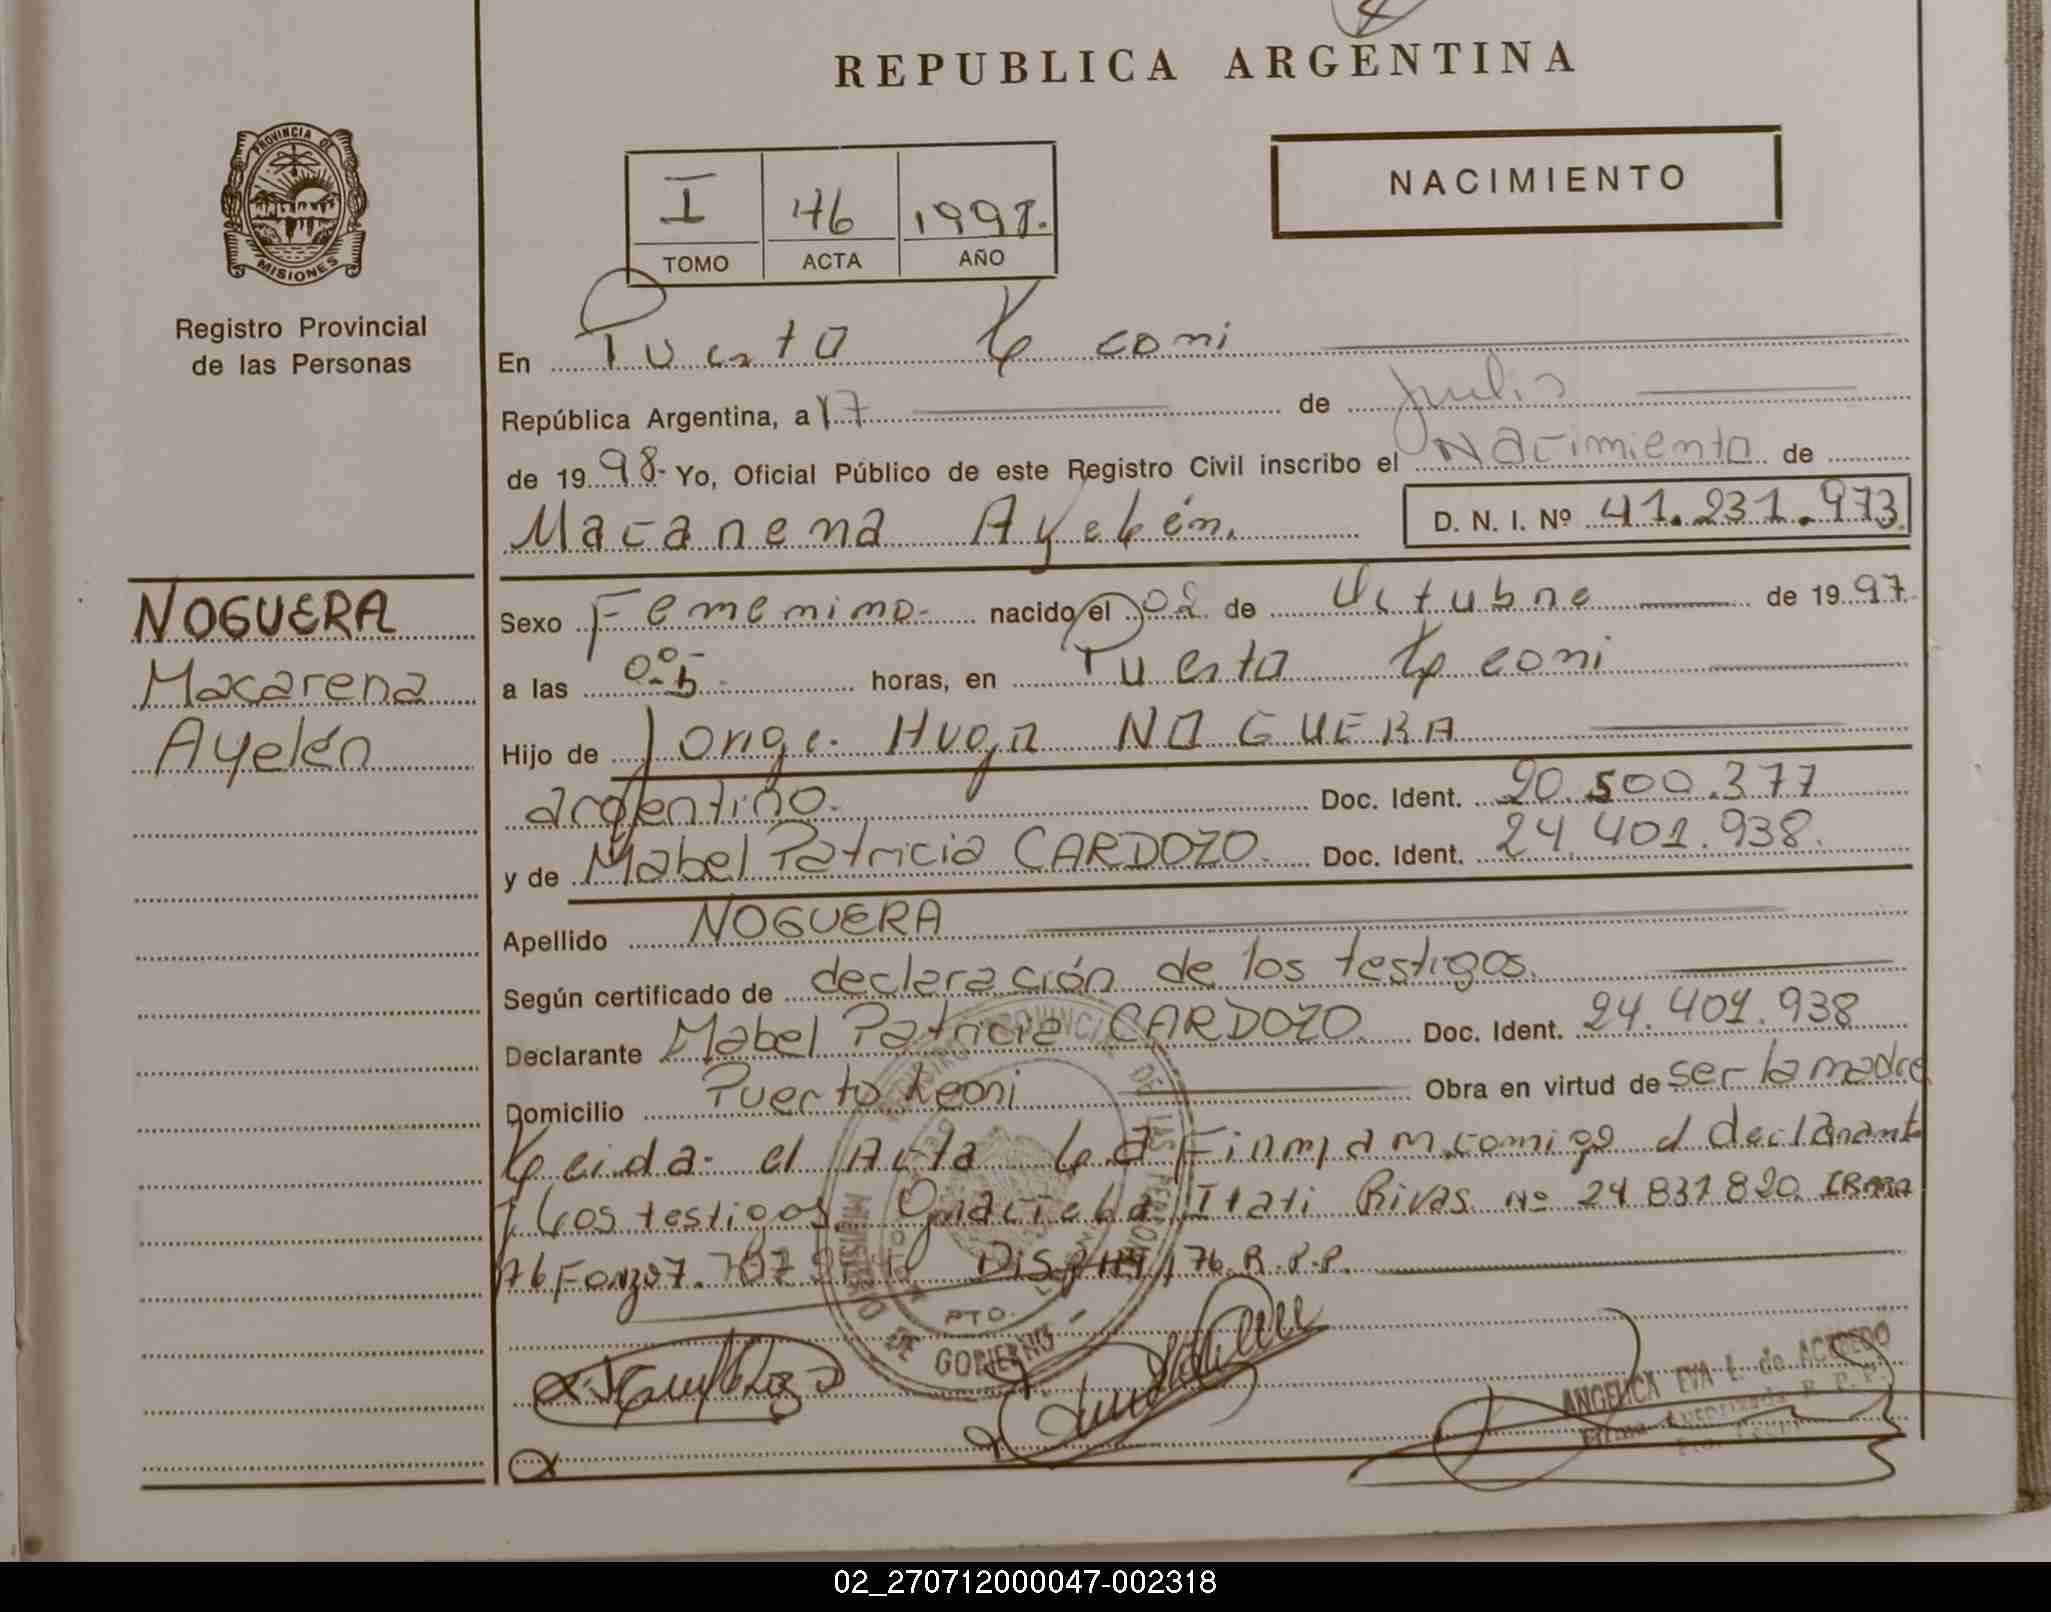 REPUBLICA ARGENTINA
PROVINCIA DE
MISIONES
Registro Provincial
de las Personas
I 46 1998.
TOMO ACTA AÑO
NACIMIENTO
En Puerto Leoni
República Argentina, a 17 de Julio
de 1998- Yo, Oficial Público de este Registro Civil inscribo el Nacimiento de
Macarena Ayelén. D. N. I. Nº 41.231.973.
NOGUERA
Macarena
Ayelén
Sexo Femenino- nacido el 02 de Octubre de 1997.
a las horas, en Puerto Leoni
Hijo de Jorge Hugo NOGUERA
argentino. Doc. Ident. 20.500.377
y de Mabel Patricia CARDOZO. Doc. Ident. 24.401.938.
Apellido NOGUERA
Según certificado de declaración de los testigos.
Declarante Mabel Patricia CARDOZO. Doc. Ident. 24.401.938
Domicilio Puerto Leoni Obra en virtud de ser la madre
Leida el Acta La Firman comigo el declarant
Los testigos Graciela Itati Rivas Nº 24 831 820
76 R.P.P.
PTO.
MINISTERIO DE GOBIERNO
ANGELICA EVA L. de ACEVEDO
Firma Autorizada R. P. P.
02_270712000047-002318